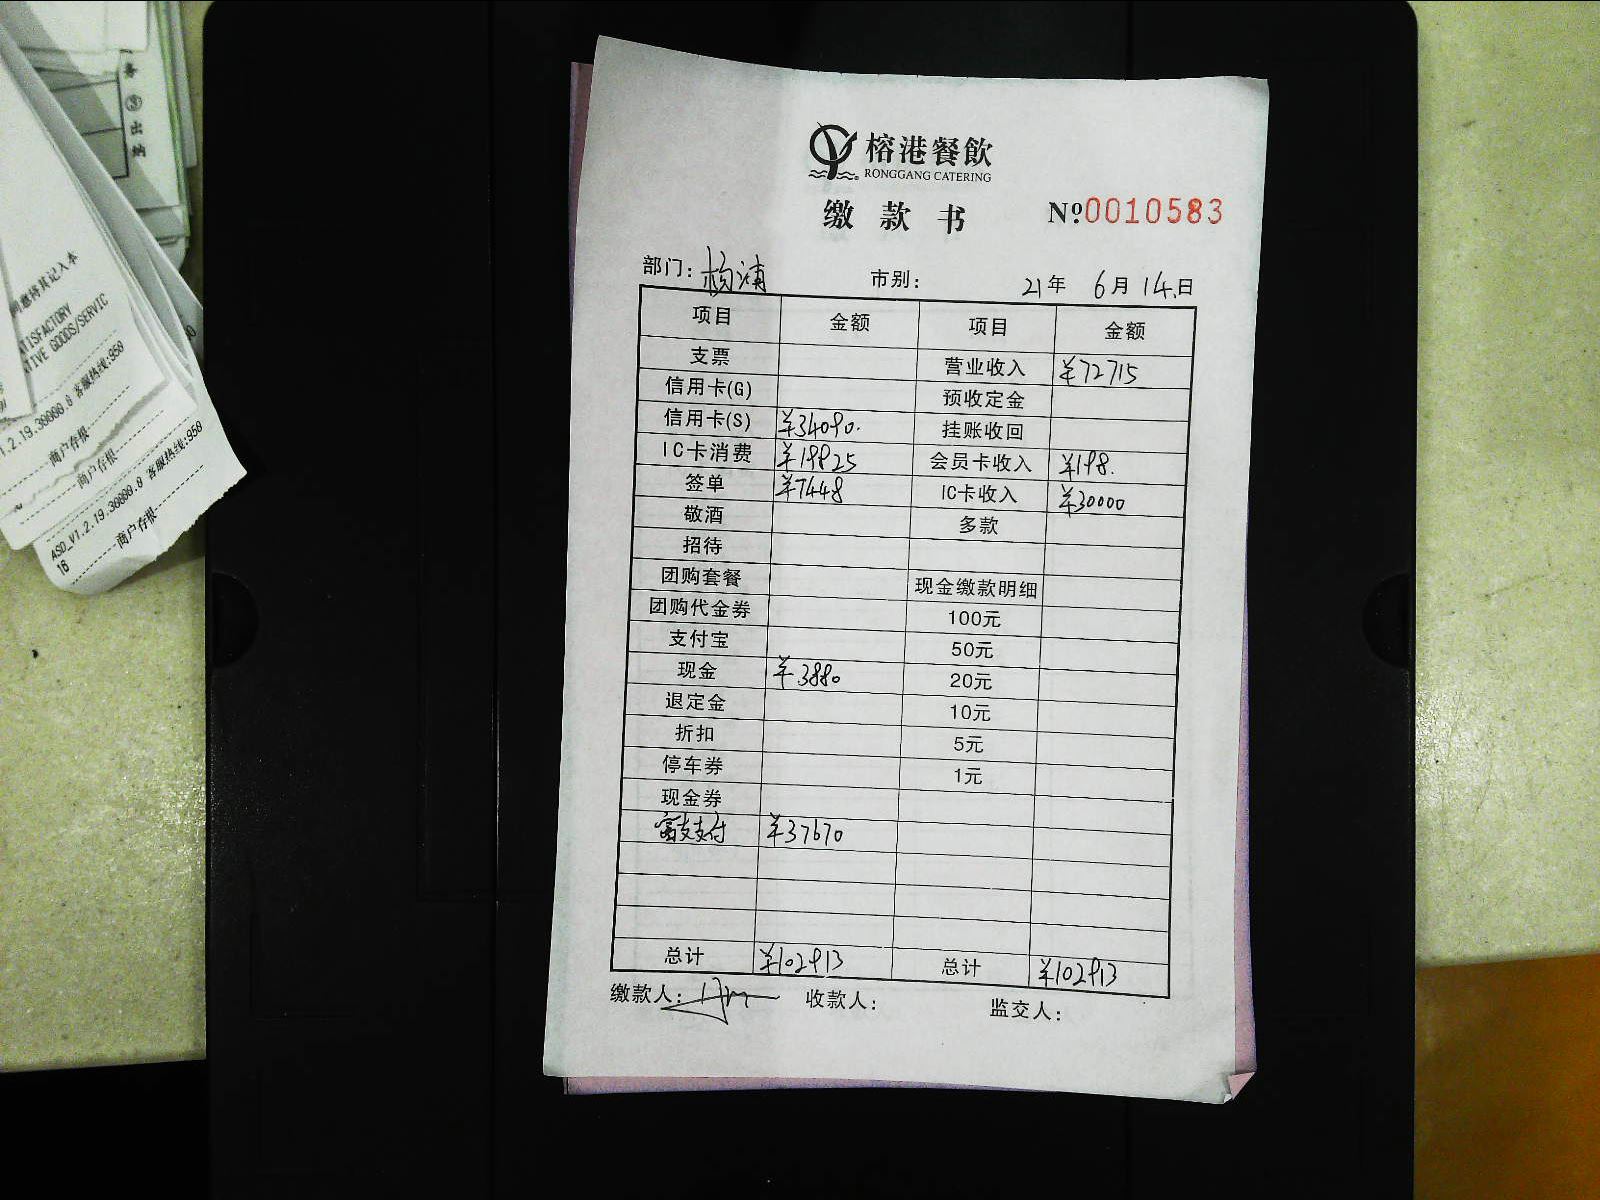 榕港餐飲
RONGGANG CATERING
缴款书 №0010583
部门：杨浦 市别： 21年 6月 14日
项目 金额 项目 金额
支票 营业收入 ¥72715
信用卡(G) 预收定金
信用卡(S) ¥34090. 挂账收回
IC卡消费 ¥19825 会员卡收入 ¥198.
签单 ¥7448 IC卡收入 ¥30000
敬酒 多款
招待
团购套餐 现金缴款明细
团购代金券 100元
支付宝 50元
现金 ¥3880 20元
退定金 10元
折扣 5元
停车券 1元
现金券
富友支付 ¥37670
总计 ¥102913 总计 ¥102913
缴款人： 收款人： 监交人：
ATISFACTORY
ATIVE GOODS/SERVIC
1.2.19.30000.0 客服热线:950
商户存根
商户存根
ASD_V1.2.19.30000.0 客服热线:950
16
商户存根